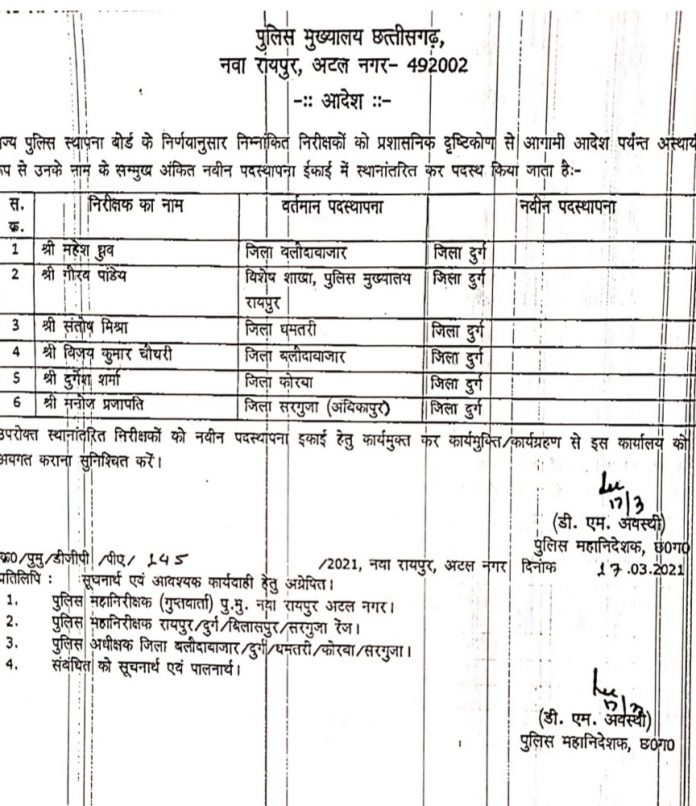 पुलिस मुख्यालय छत्तीसगढ़,
नवा रायपुर, अटल नगर- 492002
-:: आदेश ::-
ज्य पुलिस स्थापना बोर्ड के निर्णयानुसार निम्नांकित निरीक्षकों को प्रशासनिक दृष्टिकोण से आगामी आदेश पर्यन्त अस्थाय
रूप से उनके नाम के सम्मुख अंकित नवीन पदस्थापना ईकाई में स्थानांतरित कर पदस्थ किया जाता हैः-
स. क्र. निरीक्षक का नाम वर्तमान पदस्थापना नवीन पदस्थापना
1 श्री महेश ध्रुव जिला बलौदाबाजार जिला दुर्ग
2 श्री गौरव पांडेय विशेष शाखा, पुलिस मुख्यालय रायपुर जिला दुर्ग
3 श्री संतोष मिश्रा जिला धमतरी जिला दुर्ग
4 श्री विजय कुमार चौधरी जिला बलौदाबाजार जिला दुर्ग
5 श्री दुर्गेश शर्मा जिला कोरबा जिला दुर्ग
6 श्री मनोज प्रजापति जिला सरगुजा (अंबिकापुर) जिला दुर्ग
उपरोक्त स्थानांतरित निरीक्षकों को नवीन पदस्थापना इकाई हेतु कार्यमुक्त कर कार्यमुक्ति/कार्यग्रहण से इस कार्यालय को
अवगत कराना सुनिश्चित करें।
17/3
(डी. एम. अवस्थी)
पुलिस महानिदेशक, छ0ग0
क्र0/पुमु/डीजीपी/पीए/ 145 /2021, नवा रायपुर, अटल नगर दिनांक 17.03.2021
प्रतिलिपि : सूचनार्थ एवं आवश्यक कार्यवाही हेतु अग्रेषित।
1. पुलिस महानिरीक्षक (गुप्तवार्ता) पु.मु. नया रायपुर अटल नगर।
2. पुलिस महानिरीक्षक रायपुर/दुर्ग/बिलासपुर/सरगुजा रेंज।
3. पुलिस अधीक्षक जिला बलौदाबाजार/दुर्ग/धमतरी/कोरबा/सरगुजा।
4. संबंधित को सूचनार्थ एवं पालनार्थ।
(डी. एम. अवस्थी)
पुलिस महानिदेशक, छ0ग0